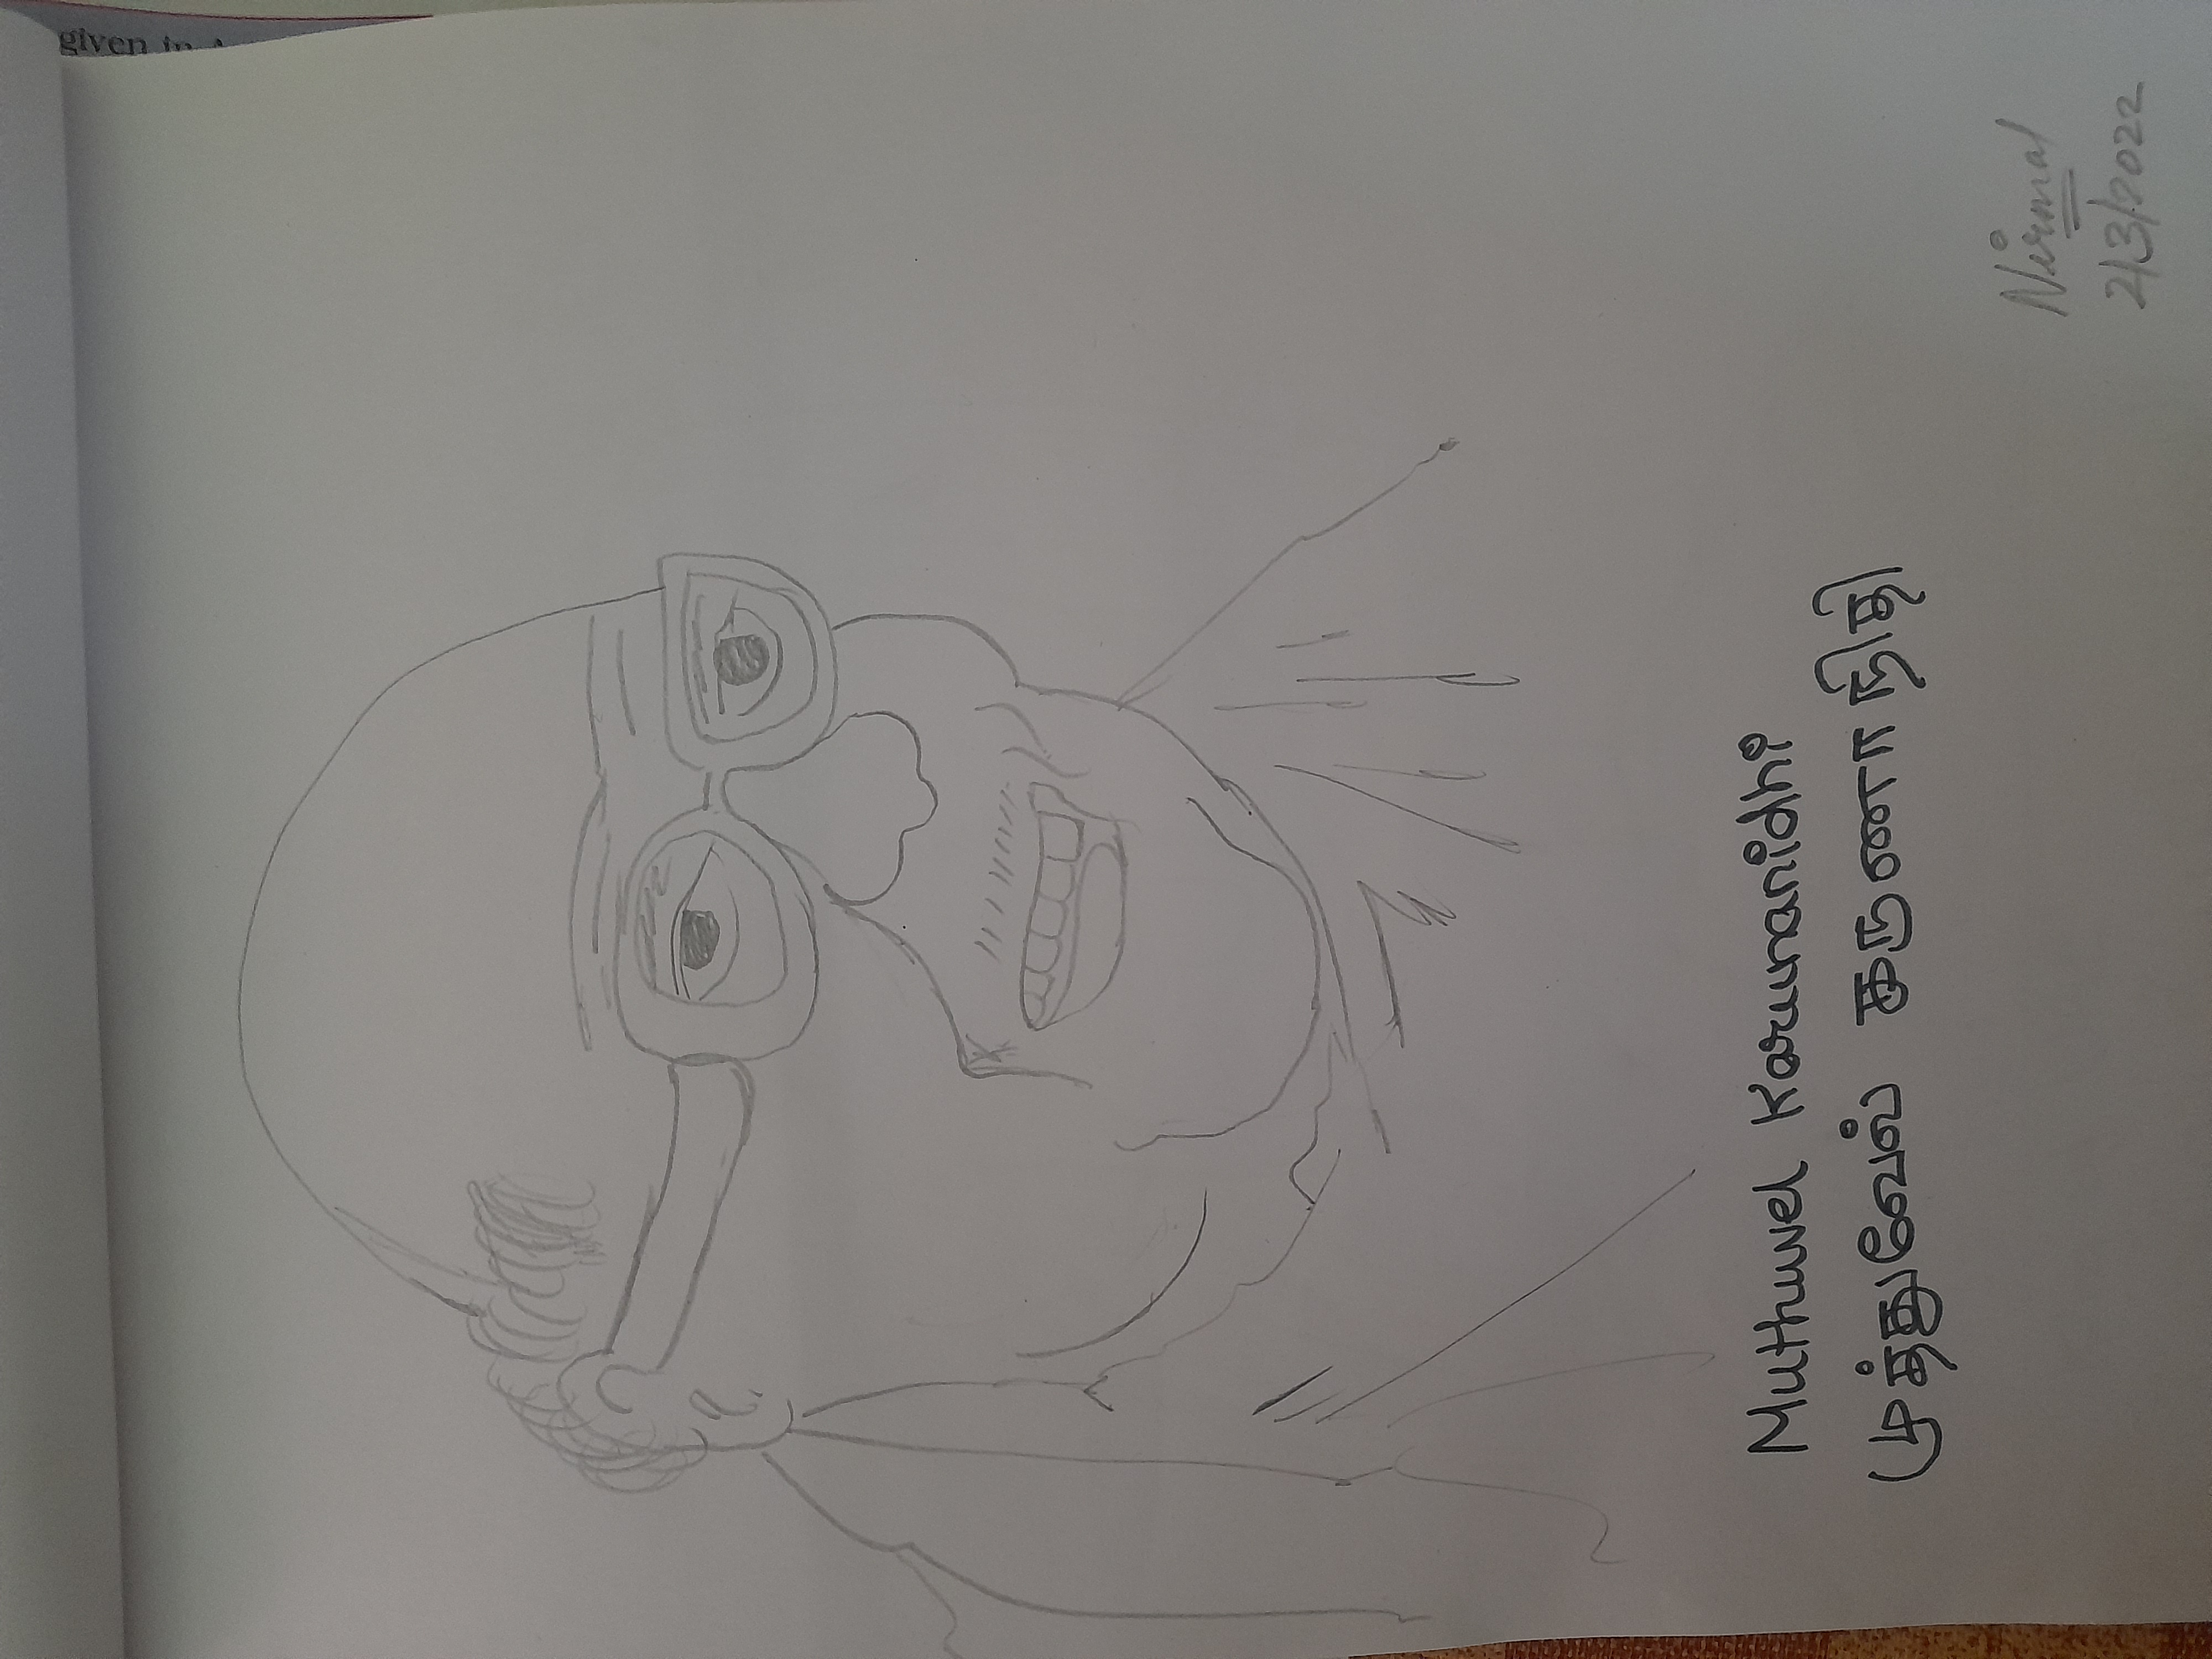 given in
Muthuvel Karunanidhi
முத்துவேல் கருணாநிதி
Nirmal
2/3/2022